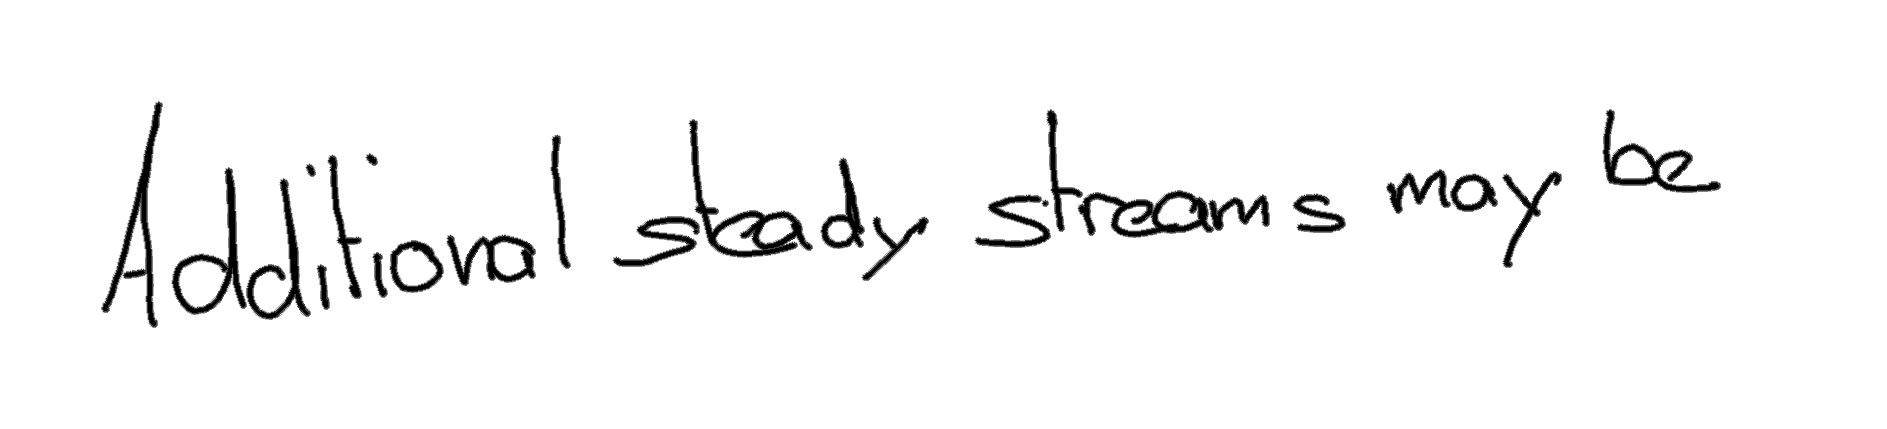 Additional steady streams may be